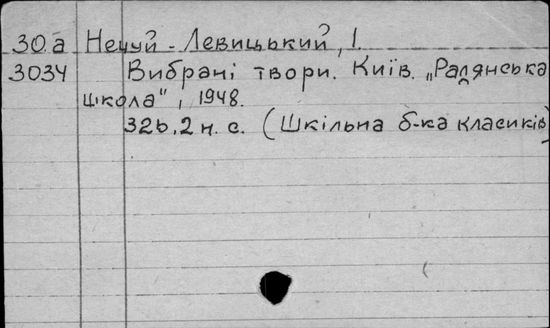 30.а Нечуй-Левицький, І.
3034 Вибрані твори. Київ. „Радянська
школа", 1948.
326, 2 н. с. (Шкільна б-ка класиків)